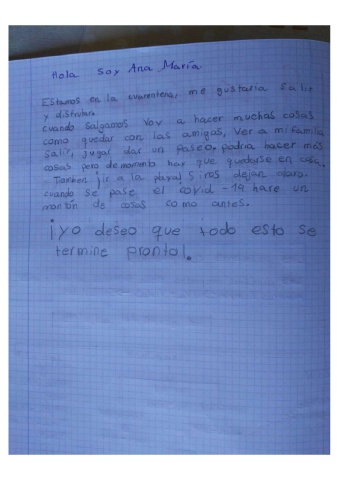 Hola soy Ana María
Estamos en la cuarentena, me gustaria salir
y disfrutar.
cuando salgamos voy a hacer muchas cosas
como quedar con las amigas, ver a mi familia
salir, jugar dar un paseo. podria hacer más
cosas pero de momento hay que quedarse en casa.
Tambien ¡ir a la playa! si nos dejan claro.
cuando se pase el covid-19 hare un
montón de cosas como antes.
¡yo deseo que todo esto se
termine pronto!.